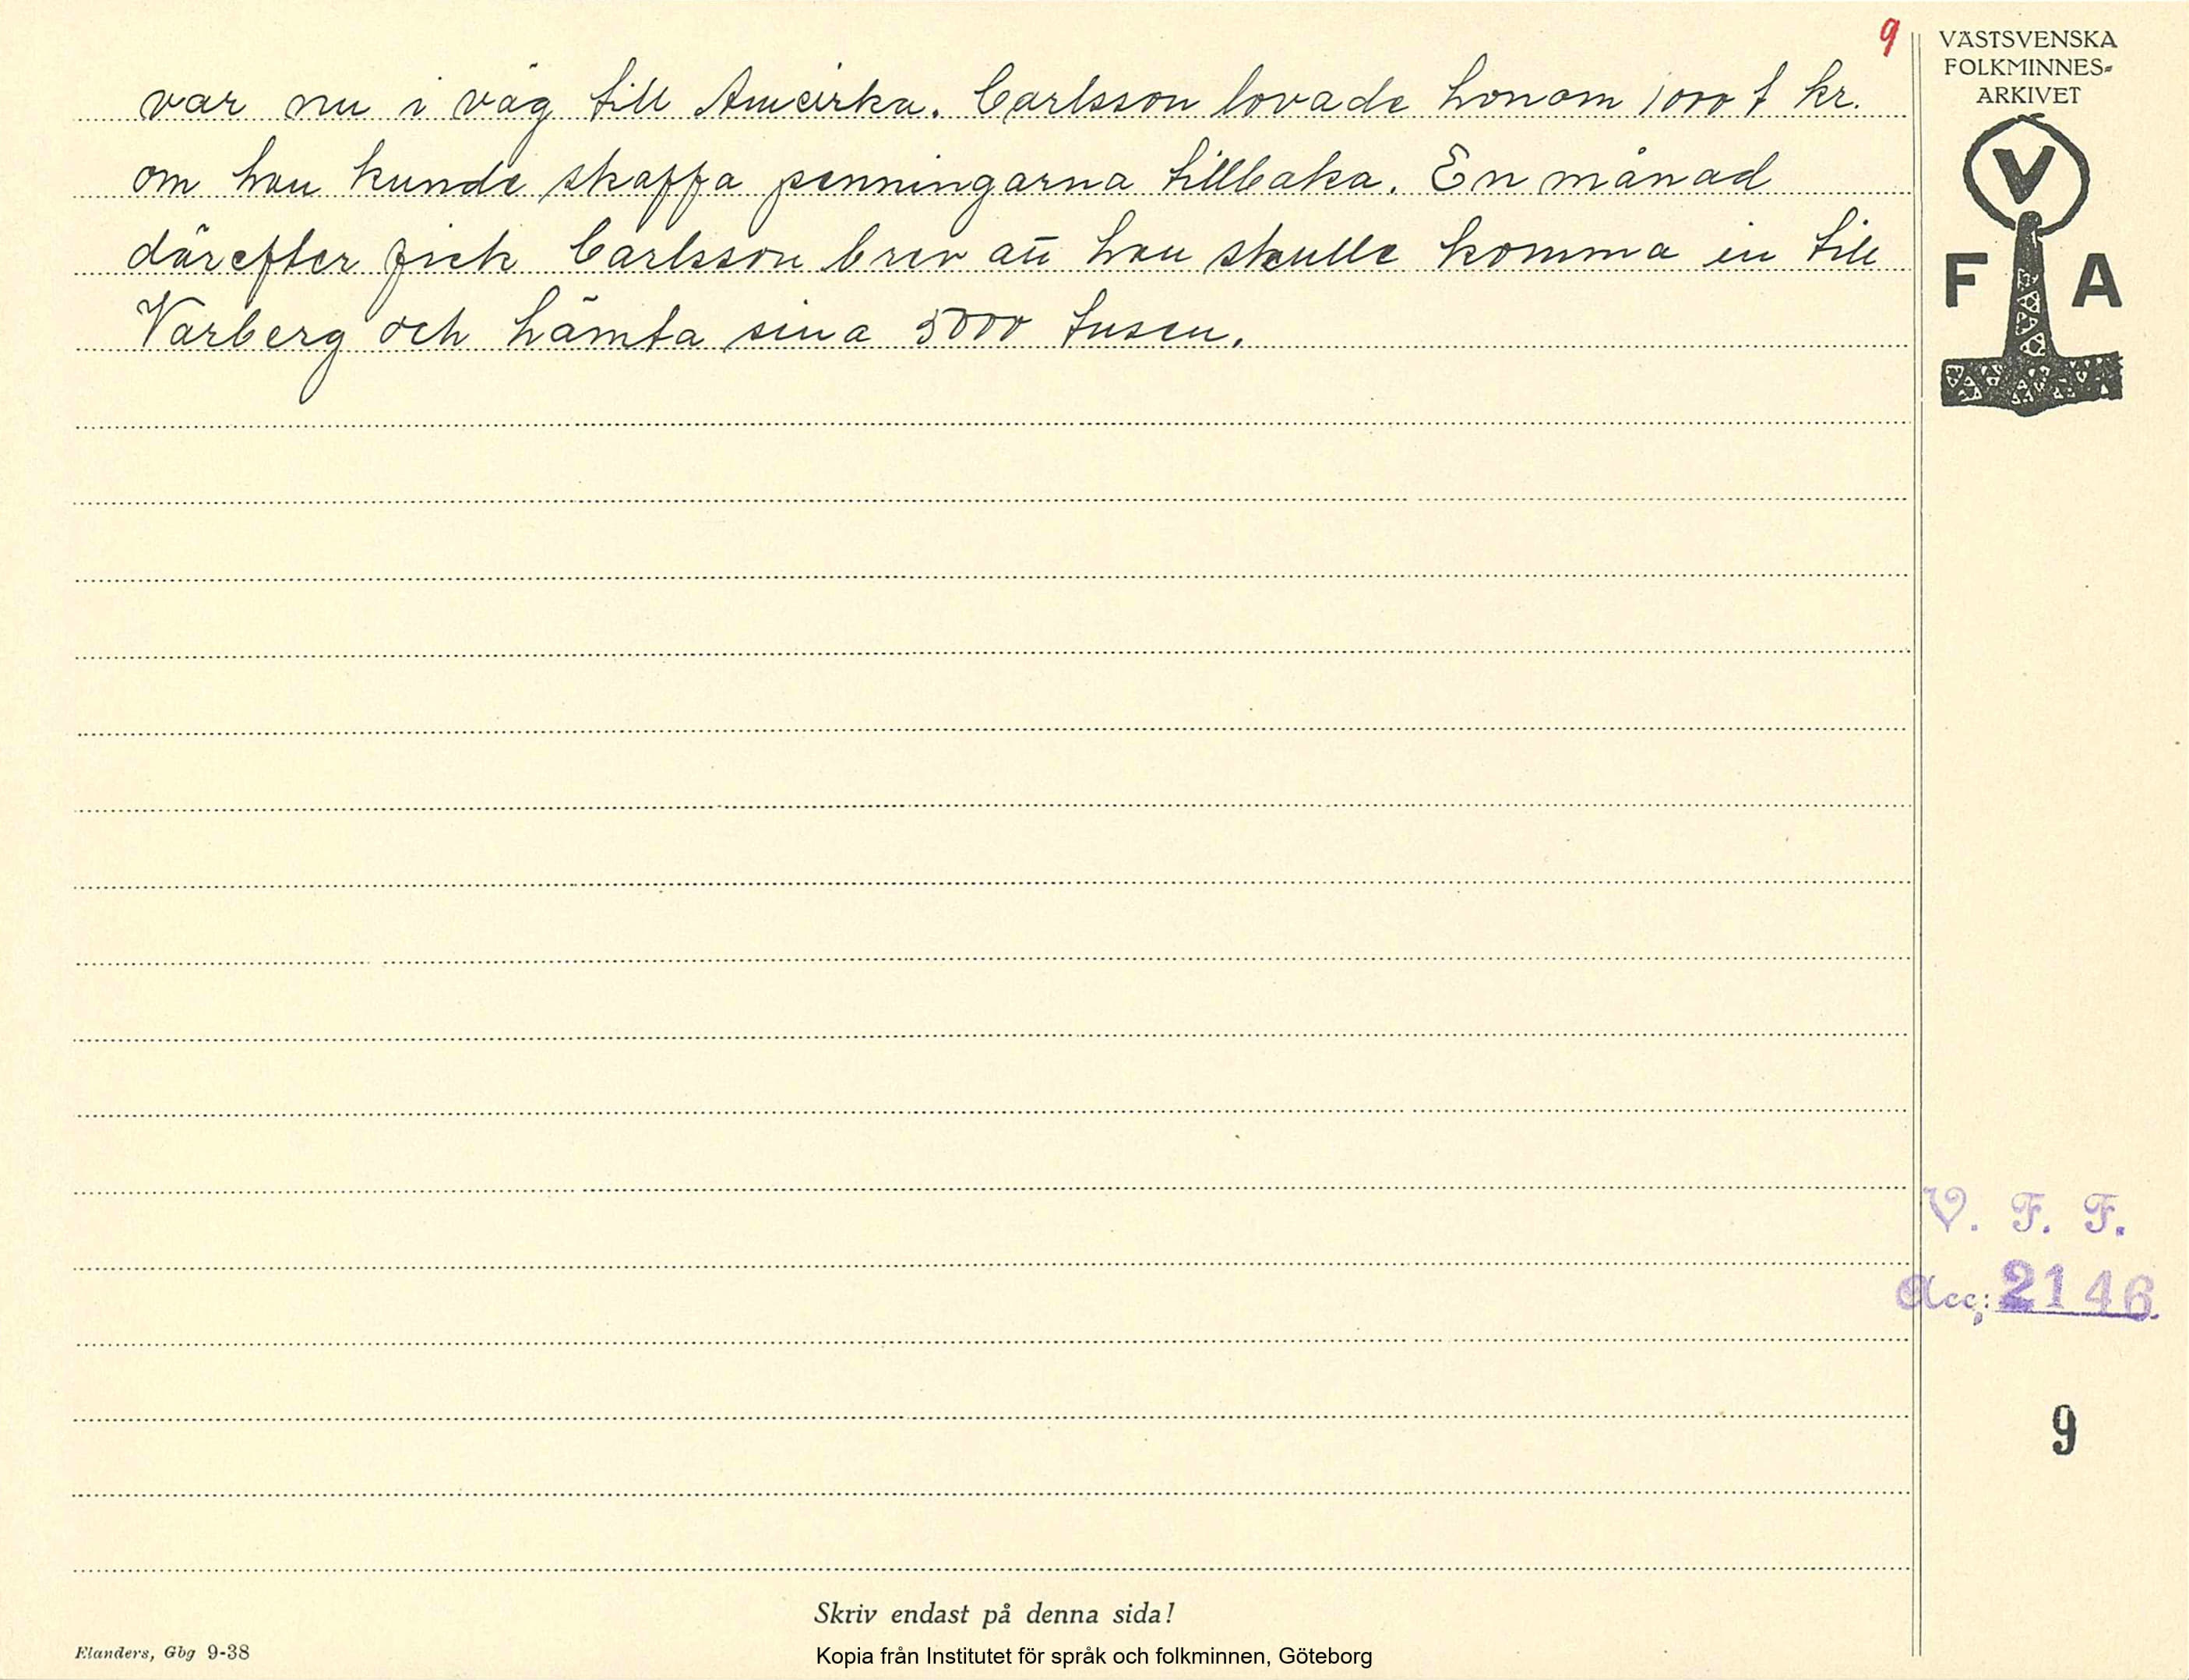 9
var nu i väg till Ameirka. Carlsson lovade honom 1000 t kr.
om han kunde skaffa penningarna tillbaka. En månad
därefter fick Carlsson brev att han skulle komma in till
Varberg och hämta sina 5000 tusen.
VÄSTSVENSKA
FOLKMINNES-
ARKIVET
V
F A
V. F. F.
Acc: 2146
9
Skriv endast på denna sida!
Elanders, Gbg 9-38
Kopia från Institutet för språk och folkminnen, Göteborg